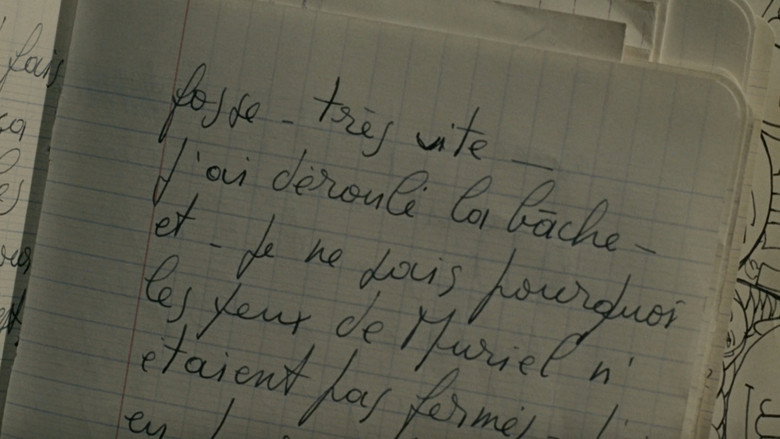 fosse - très vite -
J'ai déroulé la bâche -
et - Je ne sais pourquoi
les yeux de Muriel n'
étaient pas fermés -
en
fais